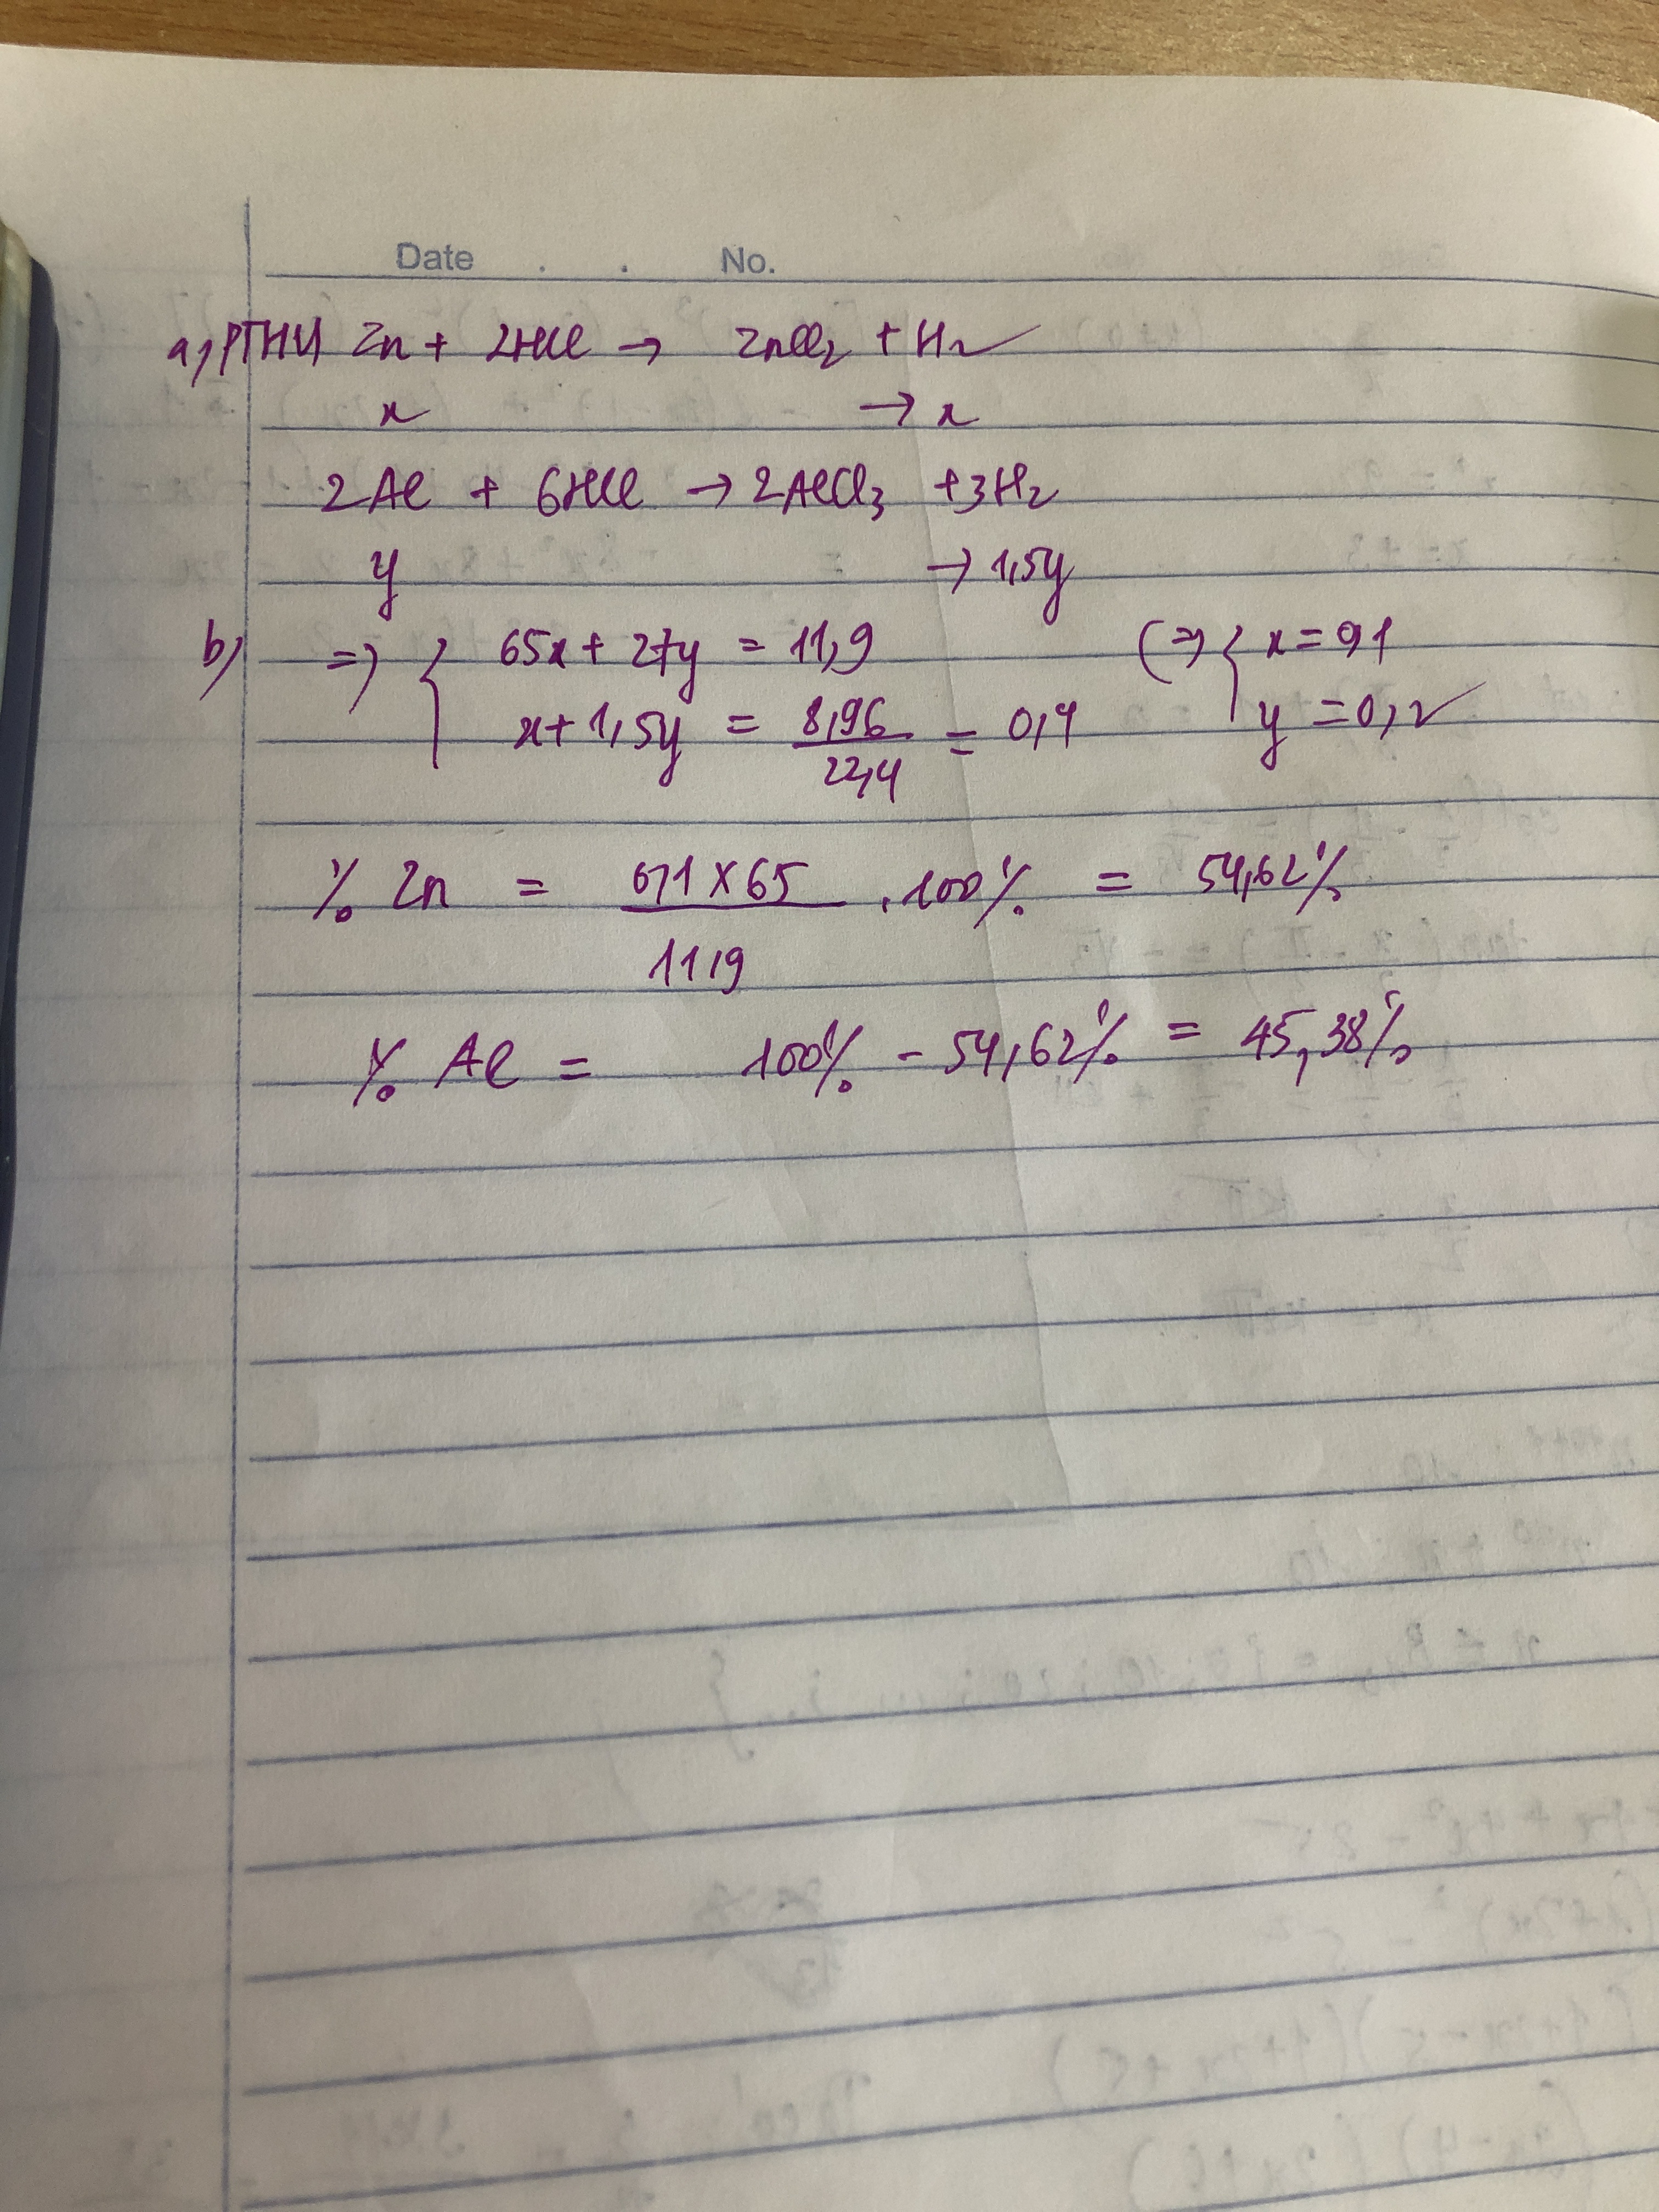 Date . . No.
a, PTHH Zn + 2HCl → ZnCl₂ + H₂
x → x
2Al + 6HCl → 2AlCl₃ + 3H₂
y → 1,5y
b) => { 65x + 27y = 11,9 (=> { x = 0,1
x + 1,5y = 8,96 / 22,4 = 0,4 y = 0,2
% Zn = 0,1 x 65 / 11,9 . 100% = 54,62%
% Al = 100% - 54,62% = 45,38%